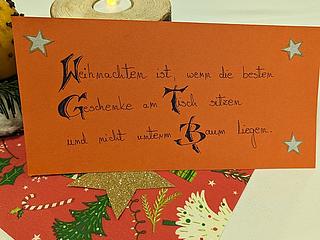 Weihnachten ist, wenn die besten
Geschenke am Tisch sitzen
und nicht unterm Baum liegen.